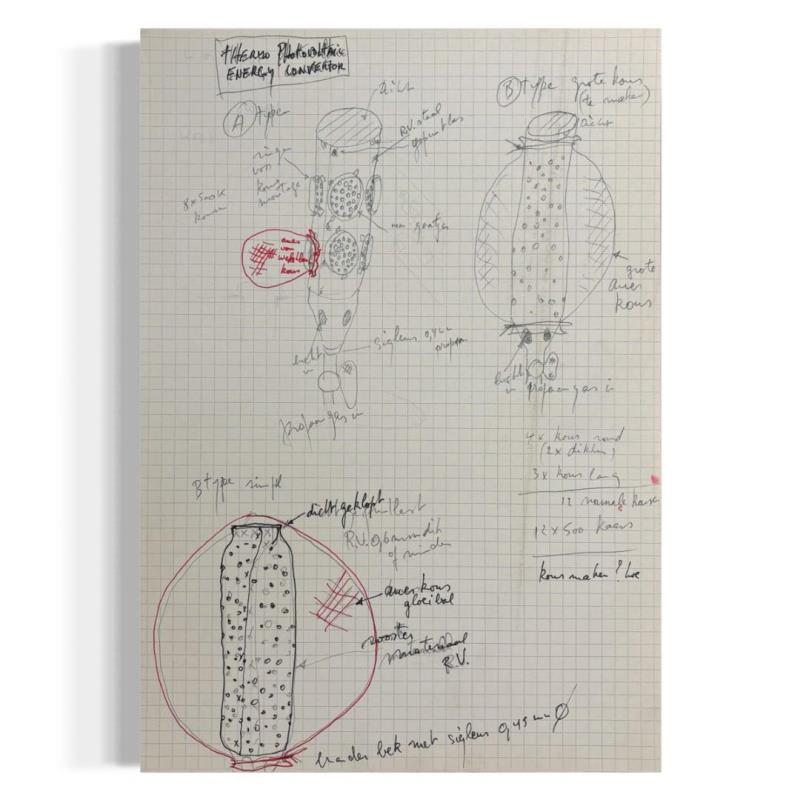 THERMO PHOTOVOLTAIC
ENERGY CONVERTOR
A type
dicht
R.V. staal
ringen
voor
kous
montage
8 x 500K
kousen
auer
kous
lucht
in
sigleur 0,4 mm
propaan
propaangas in
B type grote kous
(te maken)
dicht
grote
auer
kous
lucht
in propaangas in
4 x kous rond
(2x dikker)
3 x kous lang
12 normale kous
12 x 500 kaars
kous maken? hoe
B type simpel
dichtgeklopt
R.V.
of minder
auerkous
gloeibol
rooster
materiaal
R.V.
brander bek met sigleur 0,45 mm Ø